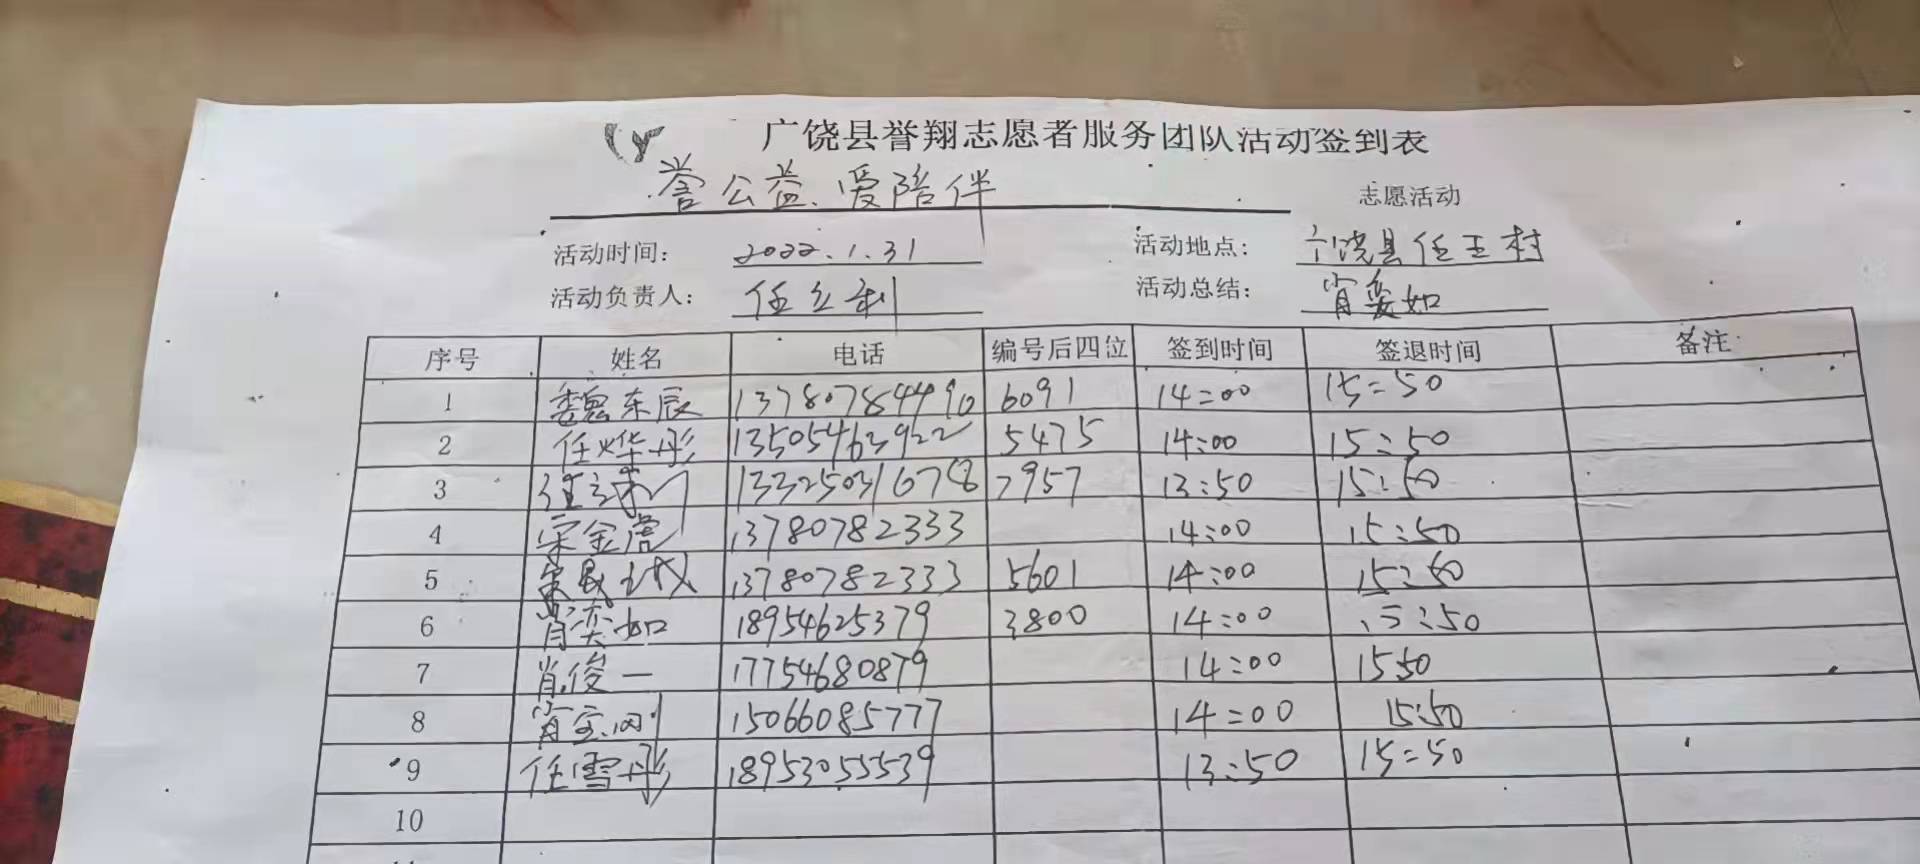 广饶县誉翔志愿者服务团队活动签到表
誉公益、爱陪伴 志愿活动
活动时间: 2022.1.31 活动地点: 广饶县任王村
活动负责人: 任立利 活动总结: 肖奕如
序号 姓名 电话 编号后四位 签到时间 签退时间 备注
1 魏东辰 13780784490 6091 14:00 15:50
2 任烨彤 13505463922 5475 14:00 15:50
3 任立利 7957 13:50 15:50
4 宋金虎 13780782333 14:00 15:50
5 13780782333 5601 14:00 15:50
6 肖奕如 18954625379 3800 14:00 15:50
7 肖俊一 17754680879 14:00 1550
8 肖宝刚 15066085777 14:00 15:50
9 任雪彤 18953055539 13:50 15:50
10